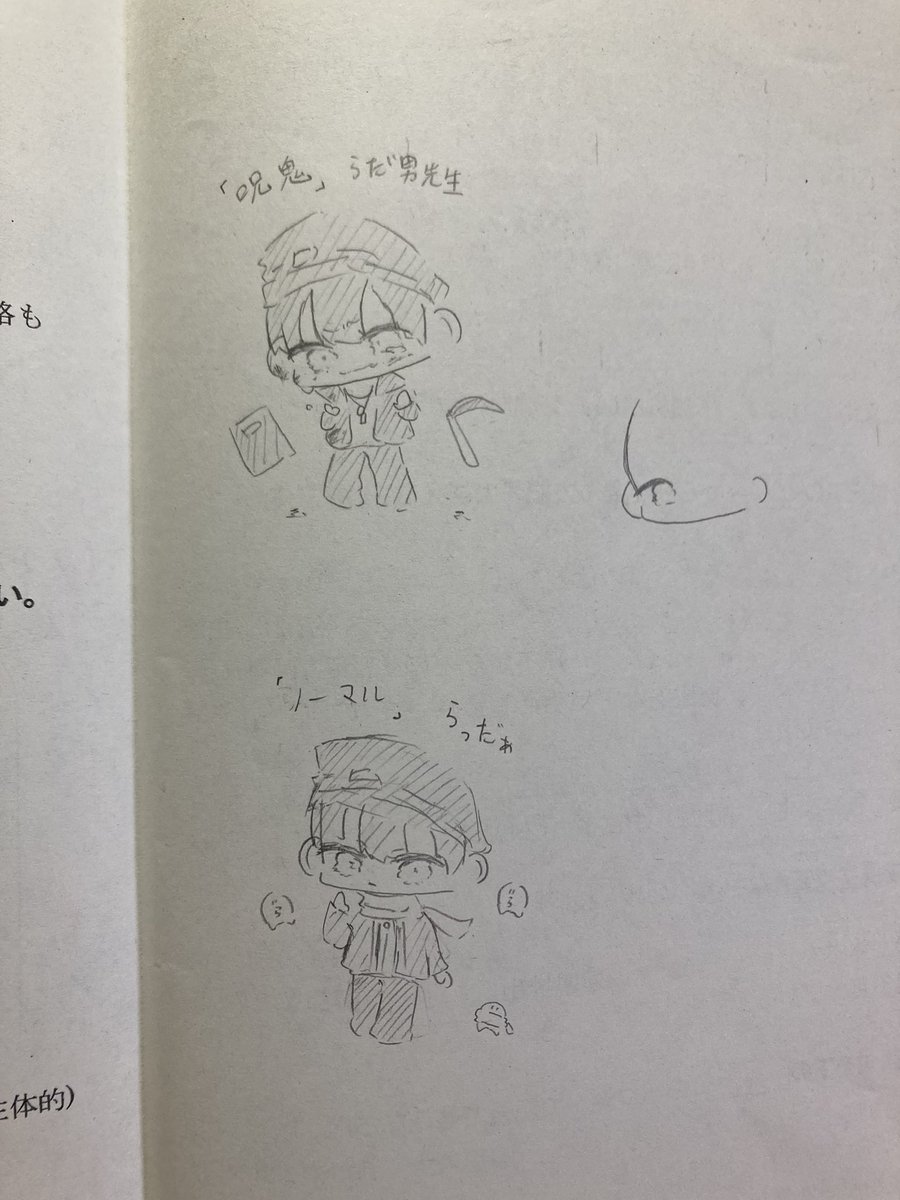 「呪鬼」 らだ男先生
「ノーマル」 らっだぁ
格も
い。
主体的)